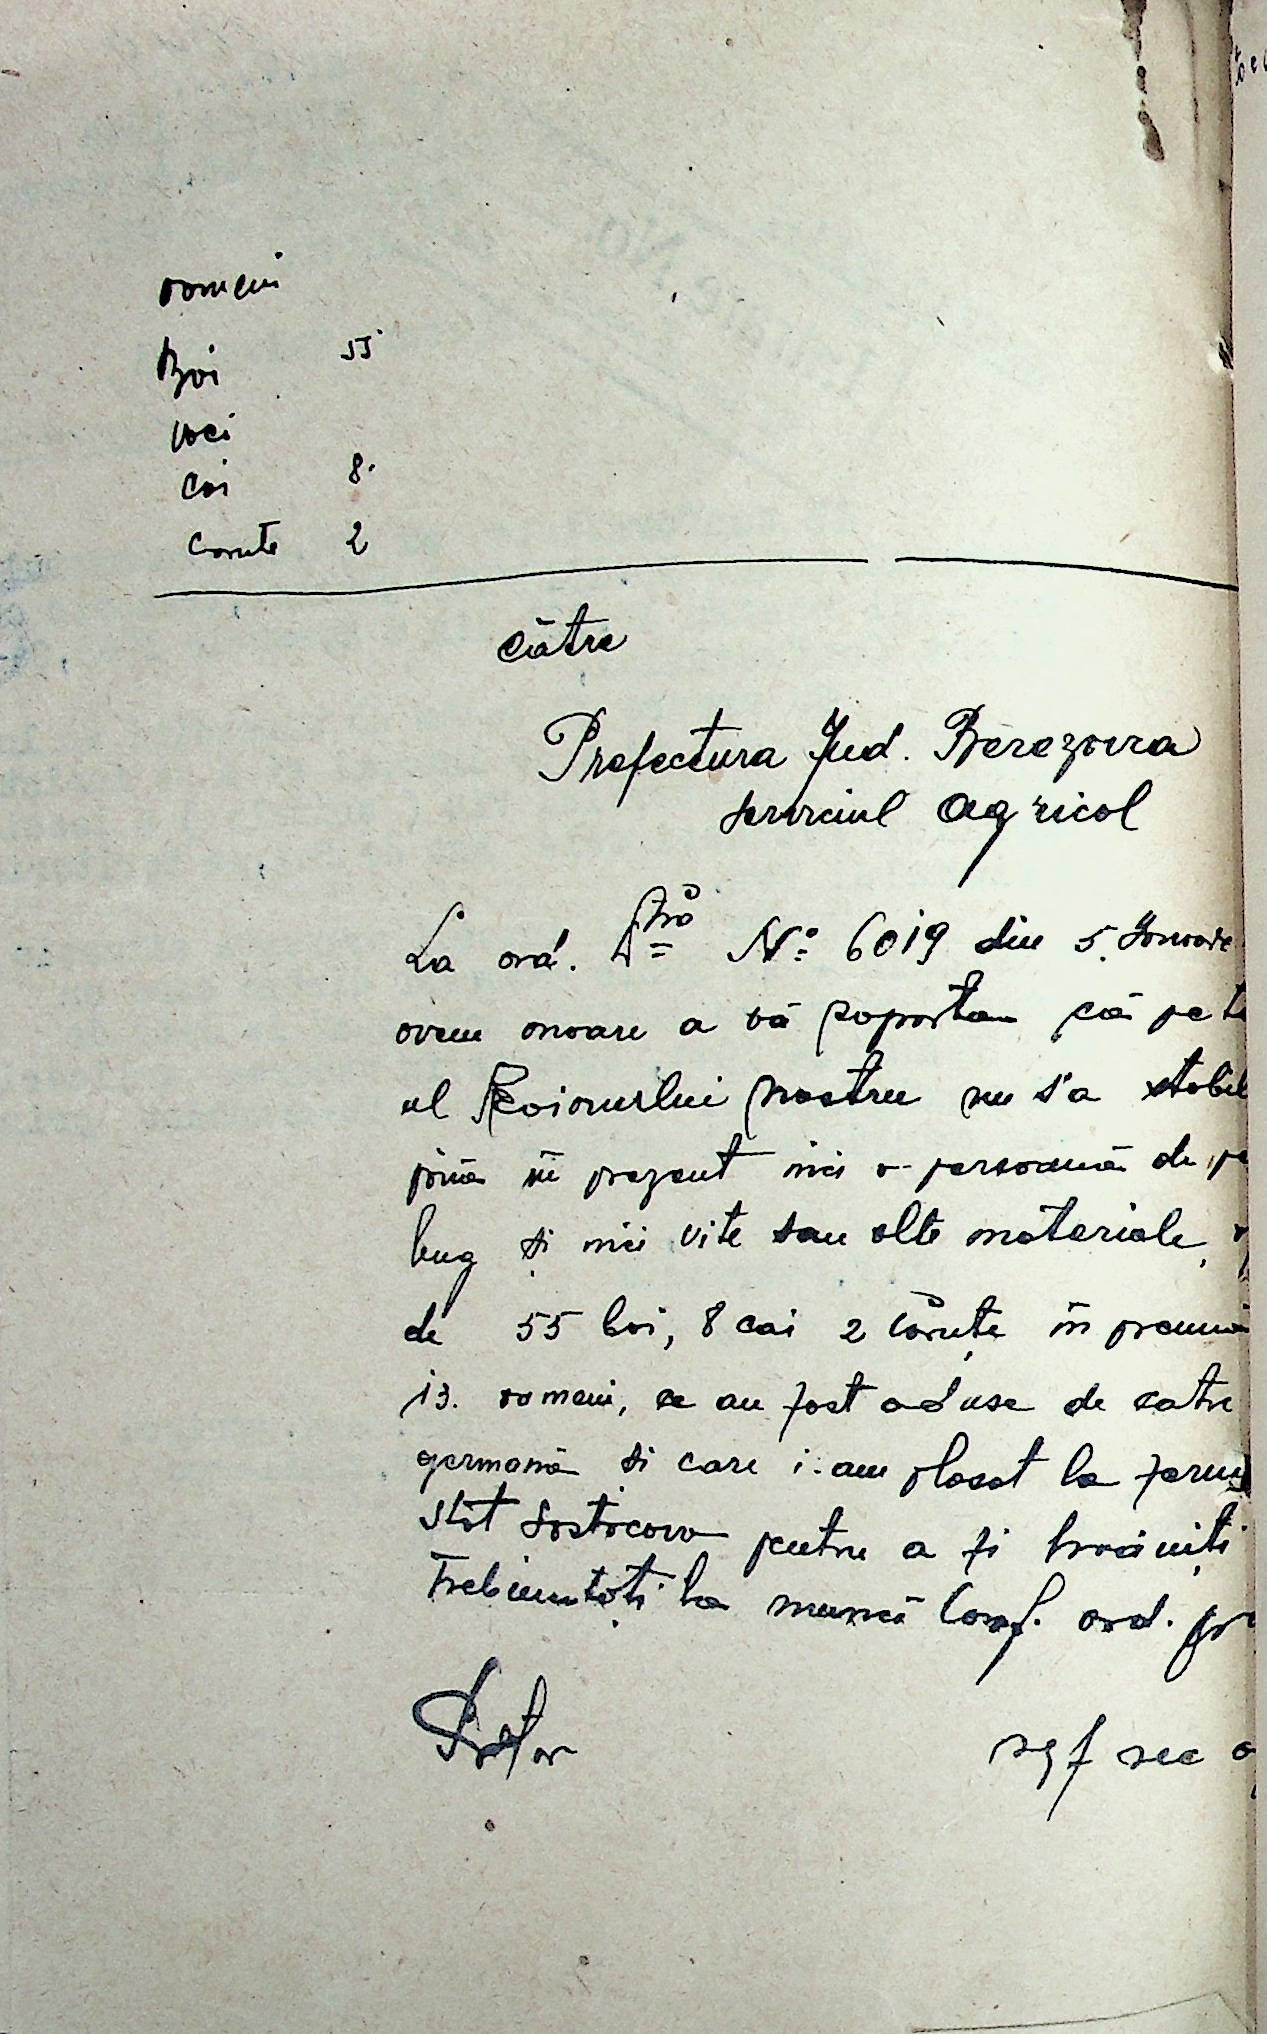 oameni
Boi 55
vaci
cai 8.
carute 2
către
Prefectura Jud. Berezovca
serviciul agricol
La ord. Dvs No: 6019 din 5. Ianuarie
avem onoare a vă raporta că pe te
al Raionului nostru nu s'a stabil
pînă în prezent nici o persoană de pe
bug și nici vite sau alte materiale,
de 55 boi, 8 cai 2 căruțe în preună
13. oameni, ce au fost aduse de catre
germană și care i-am plasat la ferm
Stat pentru a fi hrăniți
Trebuințați la muncă Conf. ord. pr
Pretor șef sec